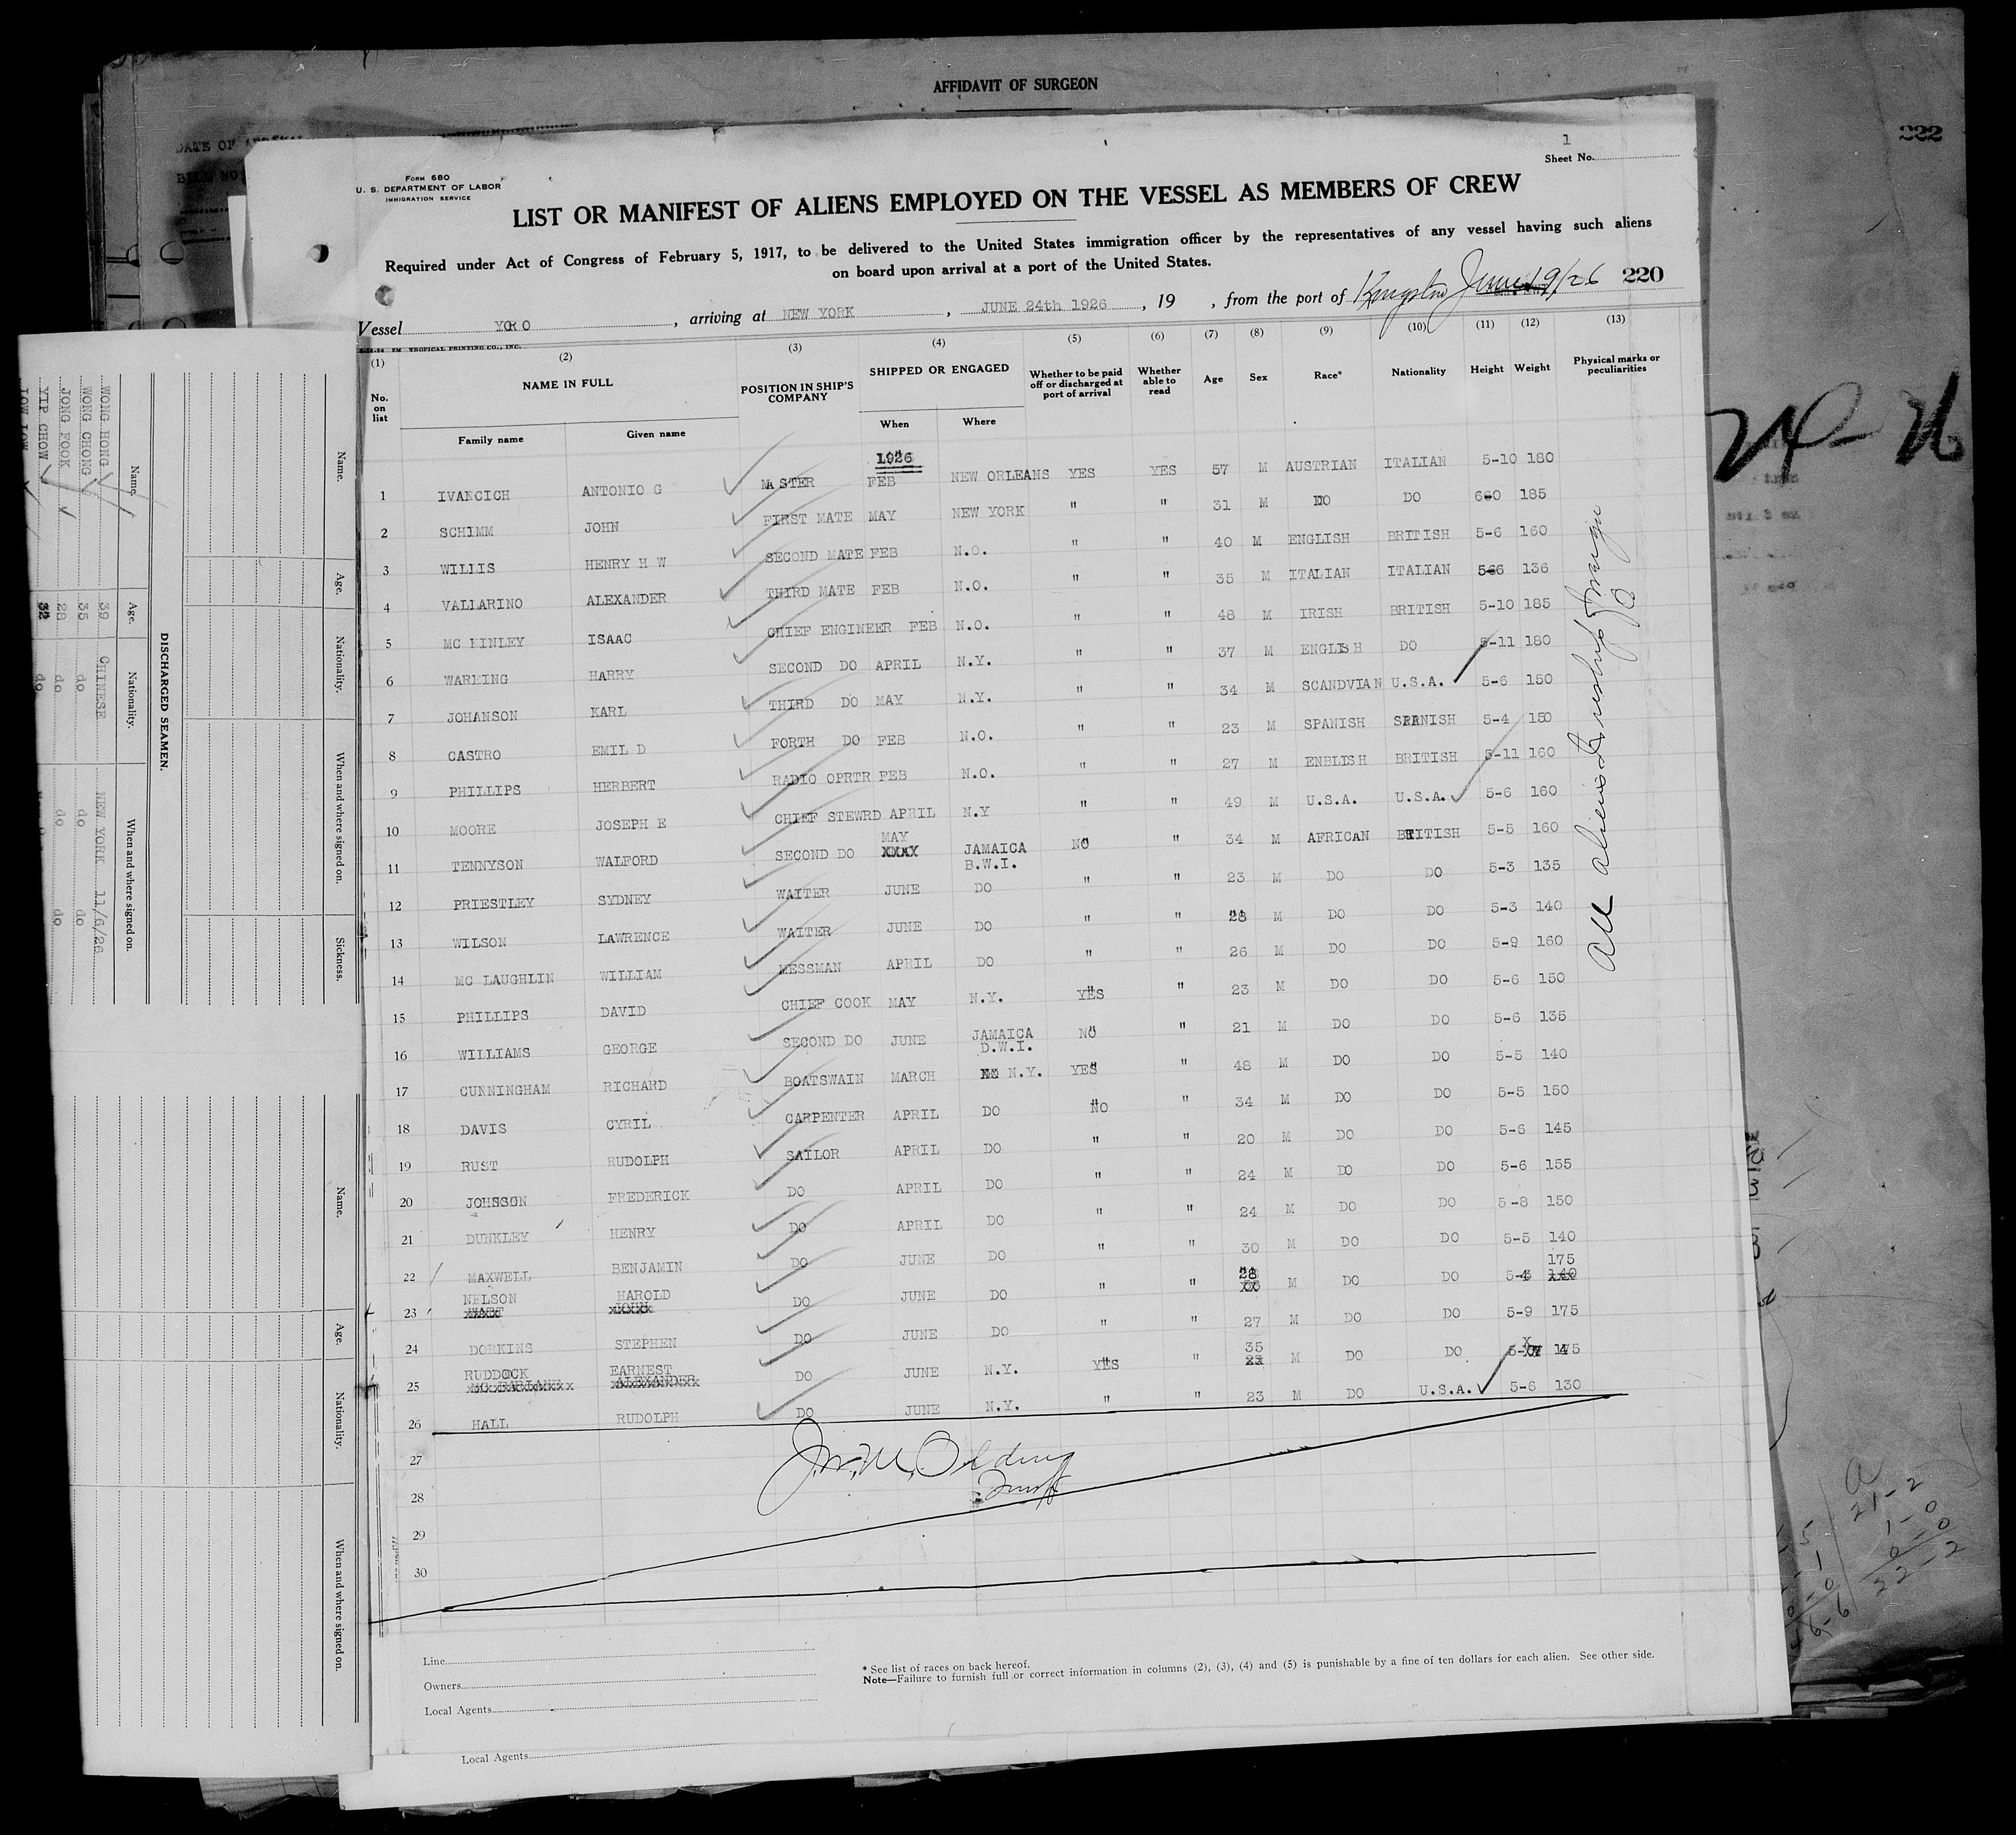 AFFIDAVIT OF SURGEON
222
1
Sheet No.
FORM 680
U. S. DEPARTMENT OF LABOR
IMMIGRATION SERVICE
LIST OR MANIFEST OF ALIENS EMPLOYED ON THE VESSEL AS MEMBERS OF CREW
Required under Act of Congress of February 5, 1917, to be delivered to the United States immigration officer by the representatives of any vessel having such aliens
on board upon arrival at a port of the United States.
220
Vessel YORO, arriving at NEW YORK, JUNE 24th 1926, 19 , from the port of Kingston June 19/26
TROPICAL PRINTING CO., INC.
(1) (2) (3) (4) (5) (6) (7) (8) (9) (10) (11) (12) (13)
No. on list
NAME IN FULL
Family name Given name
POSITION IN SHIP'S COMPANY
SHIPPED OR ENGAGED
When Where
Whether to be paid off or discharged at port of arrival
Whether able to read
Age Sex Race* Nationality Height Weight
Physical marks or peculiarities
1926
1 IVANCICH ANTONIO G MASTER FEB NEW ORLEANS YES YES 57 M AUSTRIAN ITALIAN 5-10 180
2 SCHIMM JOHN FIRST MATE MAY NEW YORK " " 31 M DO DO 6-0 185
3 WILLIS HENRY H W SECOND MATE FEB N.O. " " 40 M ENGLISH BRITISH 5-6 160
4 VALLARINO ALEXANDER THIRD MATE FEB N.O. " " 35 M ITALIAN ITALIAN 5-6 136
5 MC KINLEY ISAAC CHIEF ENGINEER FEB N.O. " " 48 M IRISH BRITISH 5-10 185
6 WARLING HARRY SECOND DO APRIL N.Y. " " 37 M ENGLISH DO 5-11 180
7 JOHANSON KARL THIRD DO MAY N.Y. " " 34 M SCANDVIAN U.S.A. 5-6 150
8 CASTRO EMIL D FORTH DO FEB N.O. " " 23 M SPANISH SPANISH 5-4 150
9 PHILLIPS HERBERT RADIO OPRTR FEB N.O. " " 27 M ENBLISH BRITISH 5-11 160
10 MOORE JOSEPH E CHIEF STEWRD APRIL N.Y " " 49 M U.S.A. U.S.A. 5-6 160
11 TENNYSON WALFORD SECOND DO MAY XXXX JAMAICA B.W.I. NO " 34 M AFRICAN BRITISH 5-5 160
12 PRIESTLEY SYDNEY WAITER JUNE DO " " 23 M DO DO 5-3 135
13 WILSON LAWRENCE WAITER JUNE DO " " 28 M DO DO 5-3 140
14 MC LAUGHLIN WILLIAM MESSMAN APRIL DO " " 26 M DO DO 5-9 160
15 PHILLIPS DAVID CHIEF COOK MAY N.Y. YES " 23 M DO DO 5-6 150
16 WILLIAMS GEORGE SECOND DO JUNE JAMAICA D.W.I. NO " 21 M DO DO 5-6 135
17 CUNNINGHAM RICHARD BOATSWAIN MARCH N.Y. YES " 48 M DO DO 5-5 140
18 DAVIS CYRIL CARPENTER APRIL DO NO " 34 M DO DO 5-5 150
19 RUST RUDOLPH SAILOR APRIL DO " " 20 M DO DO 5-6 145
20 JOHNSON FREDERICK DO APRIL DO " " 24 M DO DO 5-6 155
21 DUNKLEY HENRY DO APRIL DO " " 24 M DO DO 5-8 150
22 MAXWELL BENJAMIN DO JUNE DO " " 30 M DO DO 5-5 140
23 NELSON HAROLD DO JUNE DO " " 28 M DO DO 5-4 175
24 DORKINS STEPHEN DO JUNE DO " " 27 M DO DO 5-9 175
25 RUDDOCK EARNEST DO JUNE N.Y. YES " 35 M DO DO 175
26 HALL RUDOLPH DO JUNE N.Y. " " 23 M DO U.S.A. 5-6 130
27
28
29
30
All aliens
Line
Owners
Local Agents
* See list of races on back hereof.
Note—Failure to furnish full or correct information in columns (2), (3), (4) and (5) is punishable by a fine of ten dollars for each alien. See other side.
Local Agents
DISCHARGED SEAMEN.
Name. Age. Nationality. When and where signed on.
WONG HONG 39 CHINESE NEW YORK 11/6/26
WONG CHONG 35 do do do
JONG FOOK 28 do do do
YIP CHOW 32 do
Name. Age. Nationality. When and where signed on. Sickness.
Name. Age. Nationality. When and where signed on.
21-2
1-0
0-0
22-2